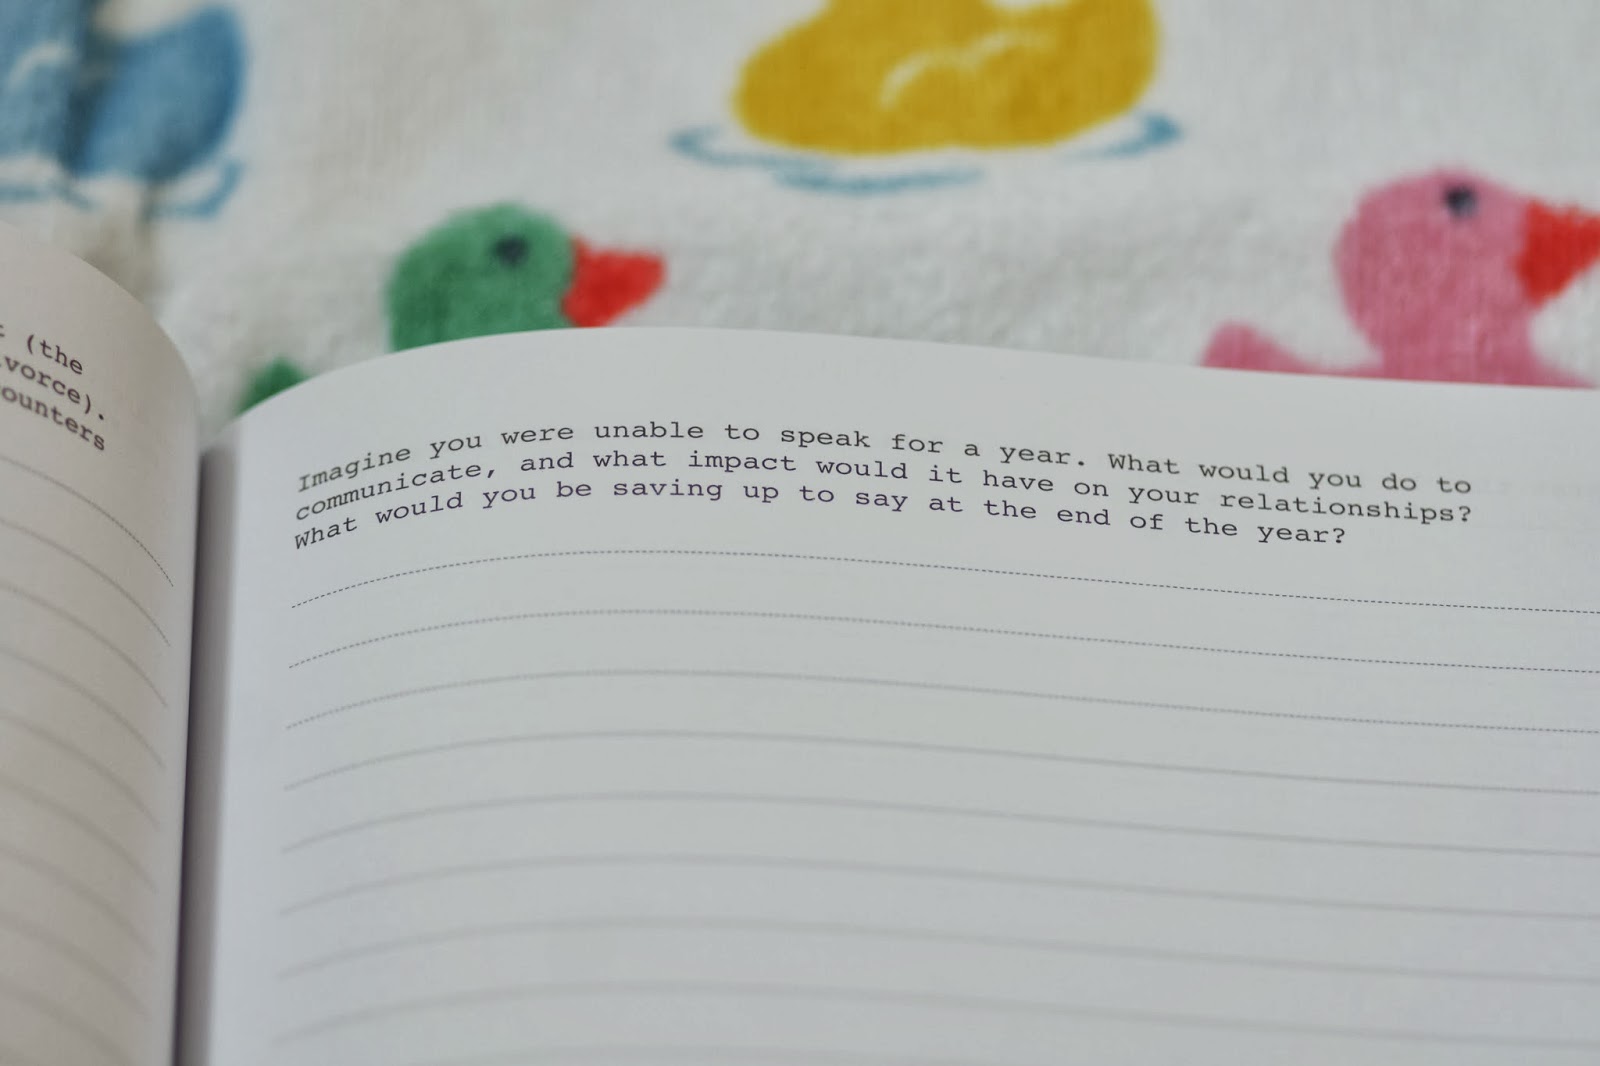 (the
ounters
Imagine you were unable to speak for a year. What would you do to
communicate, and what impact would it have on your relationships?
What would you be saving up to say at the end of the year?